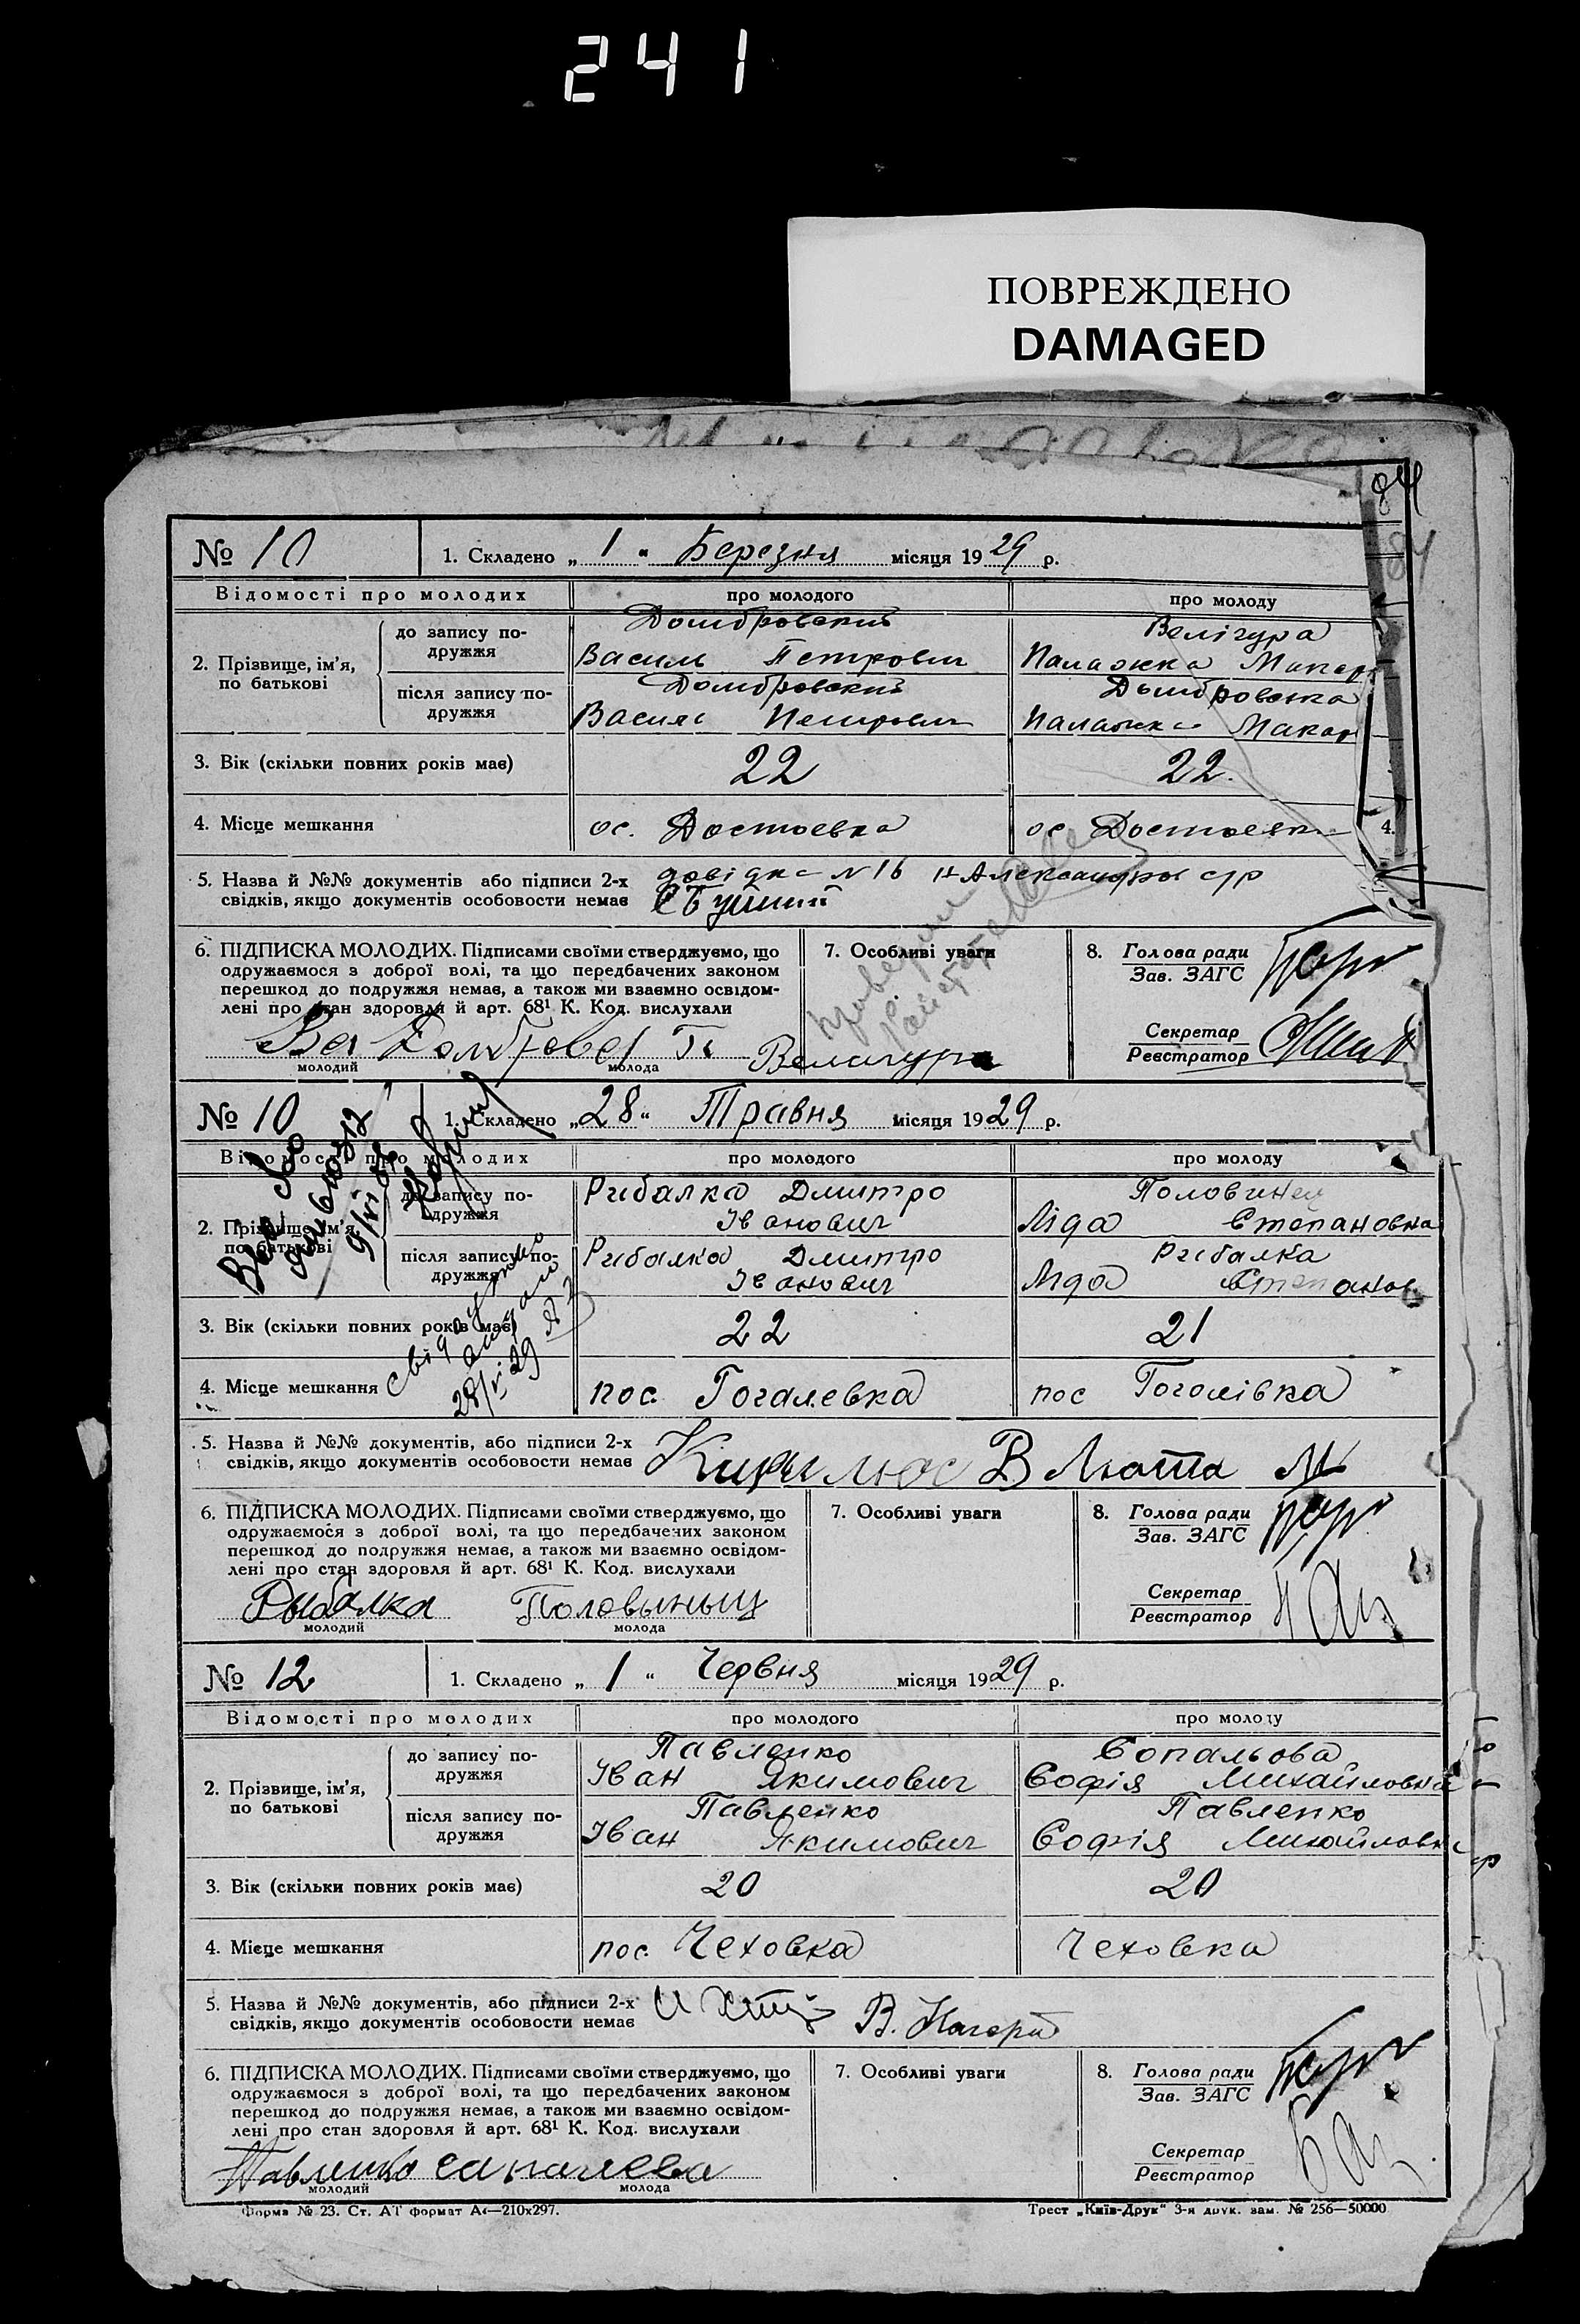 241
ПОВРЕЖДЕНО
DAMAGED
84
84
№ 10 1. Складено „ 1 " Березня місяця 1929 р.
Відомості про молодих про молодого про молоду
2. Прізвище, ім'я, по батькові
до запису по-
дружжя
Домбровский
Василь Петрович
Велігура
Палажка Макар
після запису по-
дружжя
Домбровский
Василь Петрович
Домбровська
Палажка Макар
3. Вік (скільки повних років має) 22 22.
4. Місце мешкання ос. Достоевка ос Достоевка
4.
5. Назва й №№ документів або підписи 2-х довідка №16 Н Александров с/р
свідків, якщо документів особовости немає
6. ПІДПИСКА МОЛОДИХ. Підписами своїми стверджуємо, що
одружаємося з доброї волі, та що передбачених законом
перешкод до подружжя немає, а також ми взаємно освідом-
лені про стан здоровля й арт. 68¹ К. Код. вислухали
Велигура
молодий молода
7. Особливі уваги
8. Голова ради
Зав. ЗАГС
Секретар
Реєстратор
№ 10 1. Складено „28" Травня місяця 1929 р.
Відомості про молодих про молодого про молоду
2. Прізвище, ім'я,
по батькові
до запису по-
дружжя
Рибалка Дмитро
Іванович
Половинец
Ліда Степановна
після запису по-
дружжя
Рибалка Дмитро
Іванович
Рибалка
Ліда Степанов
3. Вік (скільки повних років має) 22 21
4. Місце мешкання пос. Гоголевка пос Гоголівка
5. Назва й №№ документів, або підписи 2-х
свідків, якщо документів особовости немає
В Люта М
6. ПІДПИСКА МОЛОДИХ. Підписами своїми стверджуємо, що
одружаємося з доброї волі, та що передбачених законом
перешкод до подружжя немає, а також ми взаємно освідом-
лені про стан здоровля й арт. 68¹ К. Код. вислухали
Рыбалка Половыныц
молодий молода
7. Особливі уваги
8. Голова ради
Зав. ЗАГС
Секретар
Реєстратор
№ 12 1. Складено „ 1 " Червня місяця 1929 р.
Відомості про молодих про молодого про молоду
2. Прізвище, ім'я,
по батькові
до запису по-
дружжя
Павленко
Іван Якимович
Сопальова
Софія Михайловна
після запису по-
дружжя
Павленко
Іван Якимович
Павленко
Софія Михайловна
3. Вік (скільки повних років має) 20 20
4. Місце мешкання пос. Чеховка Чеховка
5. Назва й №№ документів, або підписи 2-х
свідків, якщо документів особовости немає
6. ПІДПИСКА МОЛОДИХ. Підписами своїми стверджуємо, що
одружаємося з доброї волі, та що передбачених законом
перешкод до подружжя немає, а також ми взаємно освідом-
лені про стан здоровля й арт. 68¹ К. Код. вислухали
Павленко Сапалева
молодий молода
7. Особливі уваги
8. Голова ради
Зав. ЗАГС
Секретар
Реєстратор
Форма № 23. Ст. АТ формат А4—210х297. Трест „Київ-Друк" 3-я друк. зам. № 256—50000